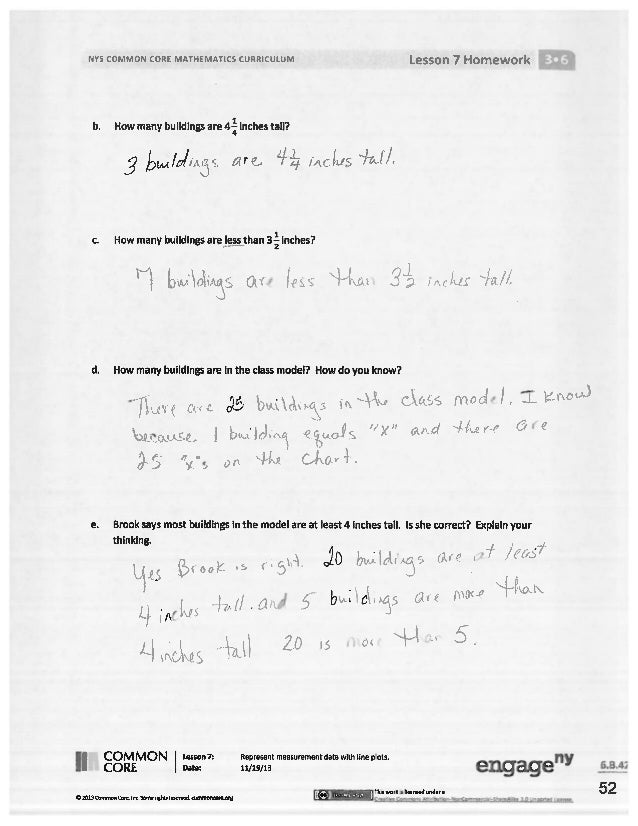 NYS COMMON CORE MATHEMATICS CURRICULUM
Lesson 7 Homework 3•6
b. How many buildings are 4 1/4 inches tall?
3 buildings are 4 1/4 inches tall.
c. How many buildings are less than 3 1/2 inches?
7 buildings are less than 3 1/2 inches tall.
d. How many buildings are in the class model? How do you know?
There are 25 buildings in the class model. I know
because 1 building equals "x" and there are
25 "x"s on the chart.
e. Brook says most buildings in the model are at least 4 inches tall. Is she correct? Explain your
thinking.
Yes Brook is right. 20 buildings are at least
4 inches tall. and 5 buildings are more than
4 inches tall 20 is more than 5.
COMMON
CORE
Lesson 7: Represent measurement data with line plots.
Date: 11/19/13
engageny
6.B.42
52
© 2013 Common Core, Inc. Some rights reserved. commoncore.org
This work is licensed under a
Creative Commons Attribution-NonCommercial-ShareAlike 3.0 Unported License.